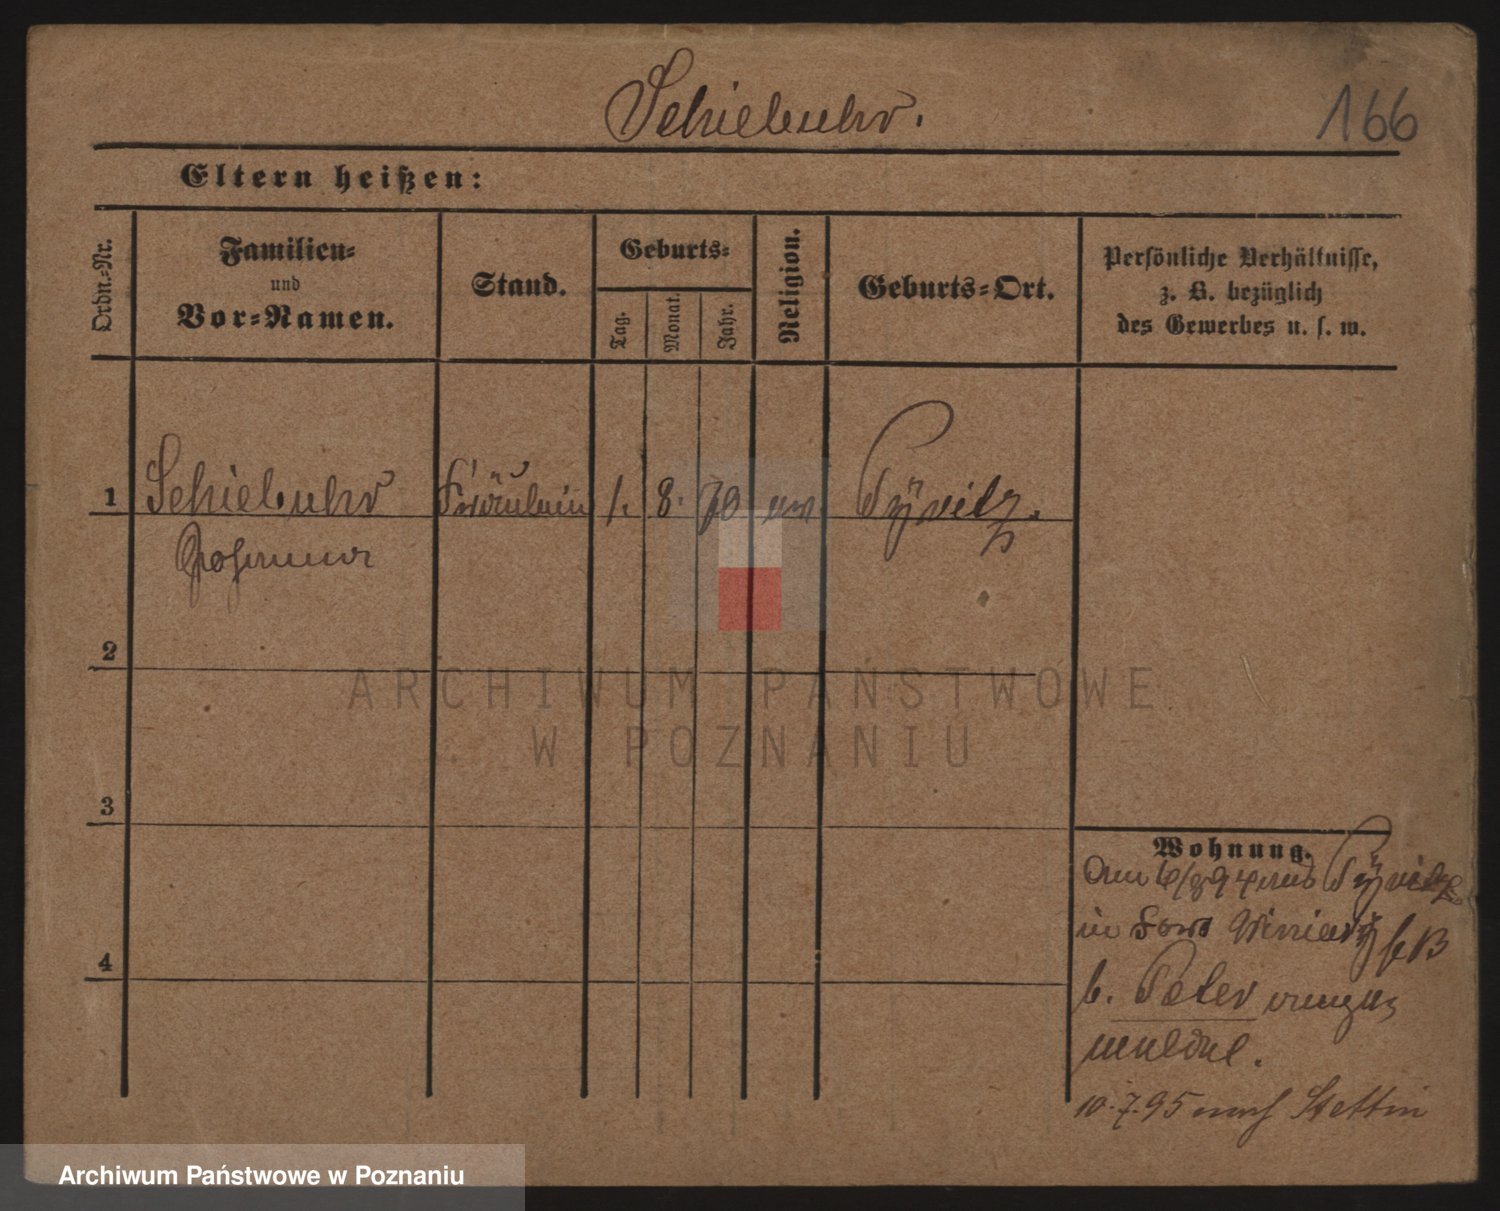 Schiebuhr.
166
Eltern heißen:
Ordn.=Nr.
Familien=
und
Vor=Namen.
Stand.
Geburts=
Tag.
Monat.
Jahr.
Religion.
Geburts=Ort.
Persönliche Verhältnisse,
z. B. bezüglich
des Gewerbes u. s. w.
1
Schiebuhr
Fräulein
1.
8.
70
ev.
Pyritz.
Johanna
2
3
4
Wohnung.
Am 6/8 94 aus Pyritz
in Fort Winiary
b. Peter
meldet.
10.7.95 nach Stettin
ARCHIWUM PAŃSTWOWE
W POZNANIU
Archiwum Państwowe w Poznaniu